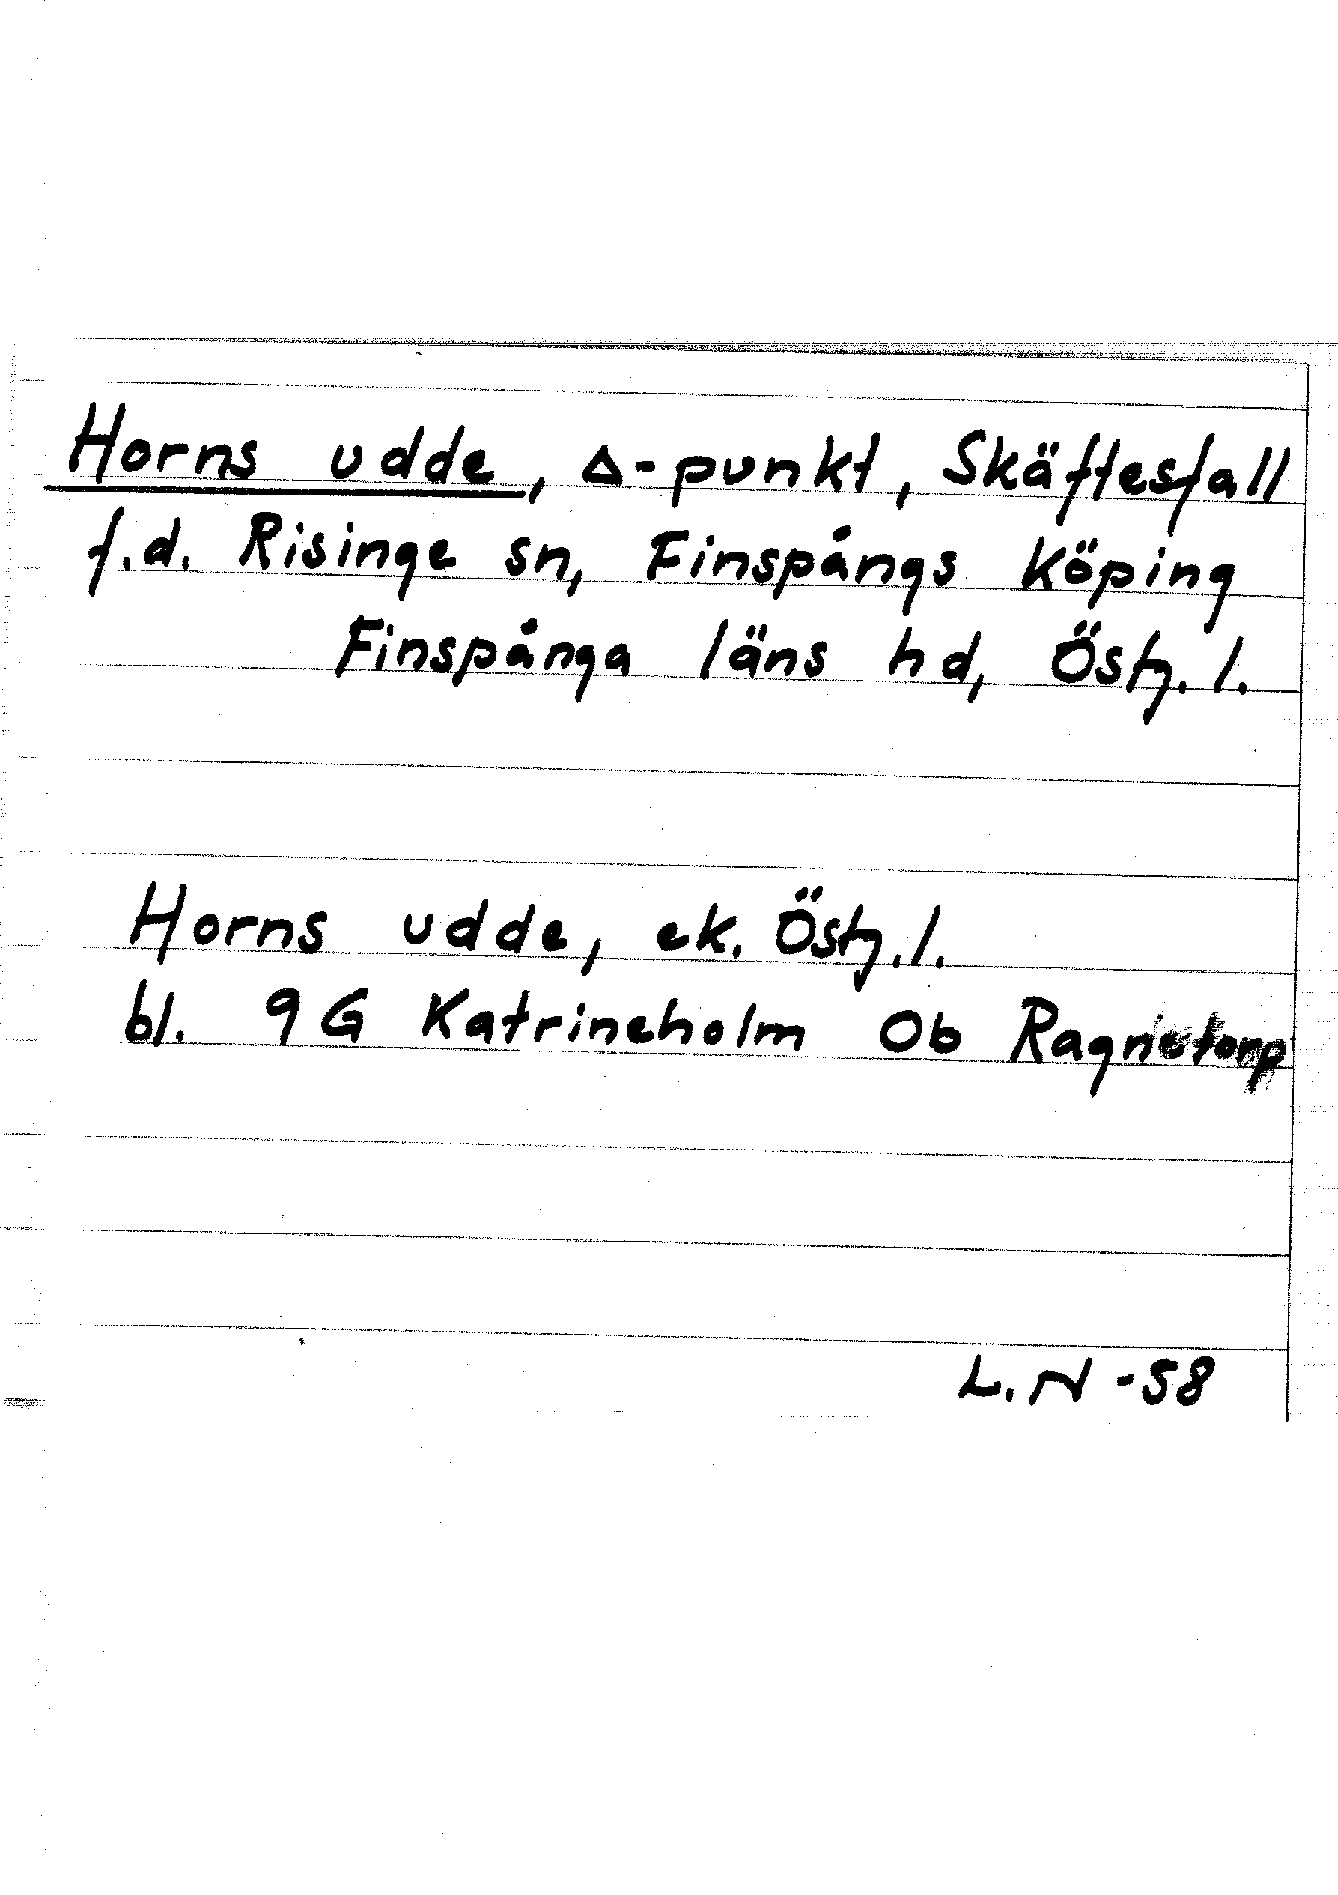 Horns udde, Δ-punkt, Skäftesfall
f.d. Risinge sn, Finspångs köping
Finspånga läns hd, Östg. l.
Horns udde, ek. Östg. l.
bl. 9G Katrineholm 0b Ragnetorp
L. N -58